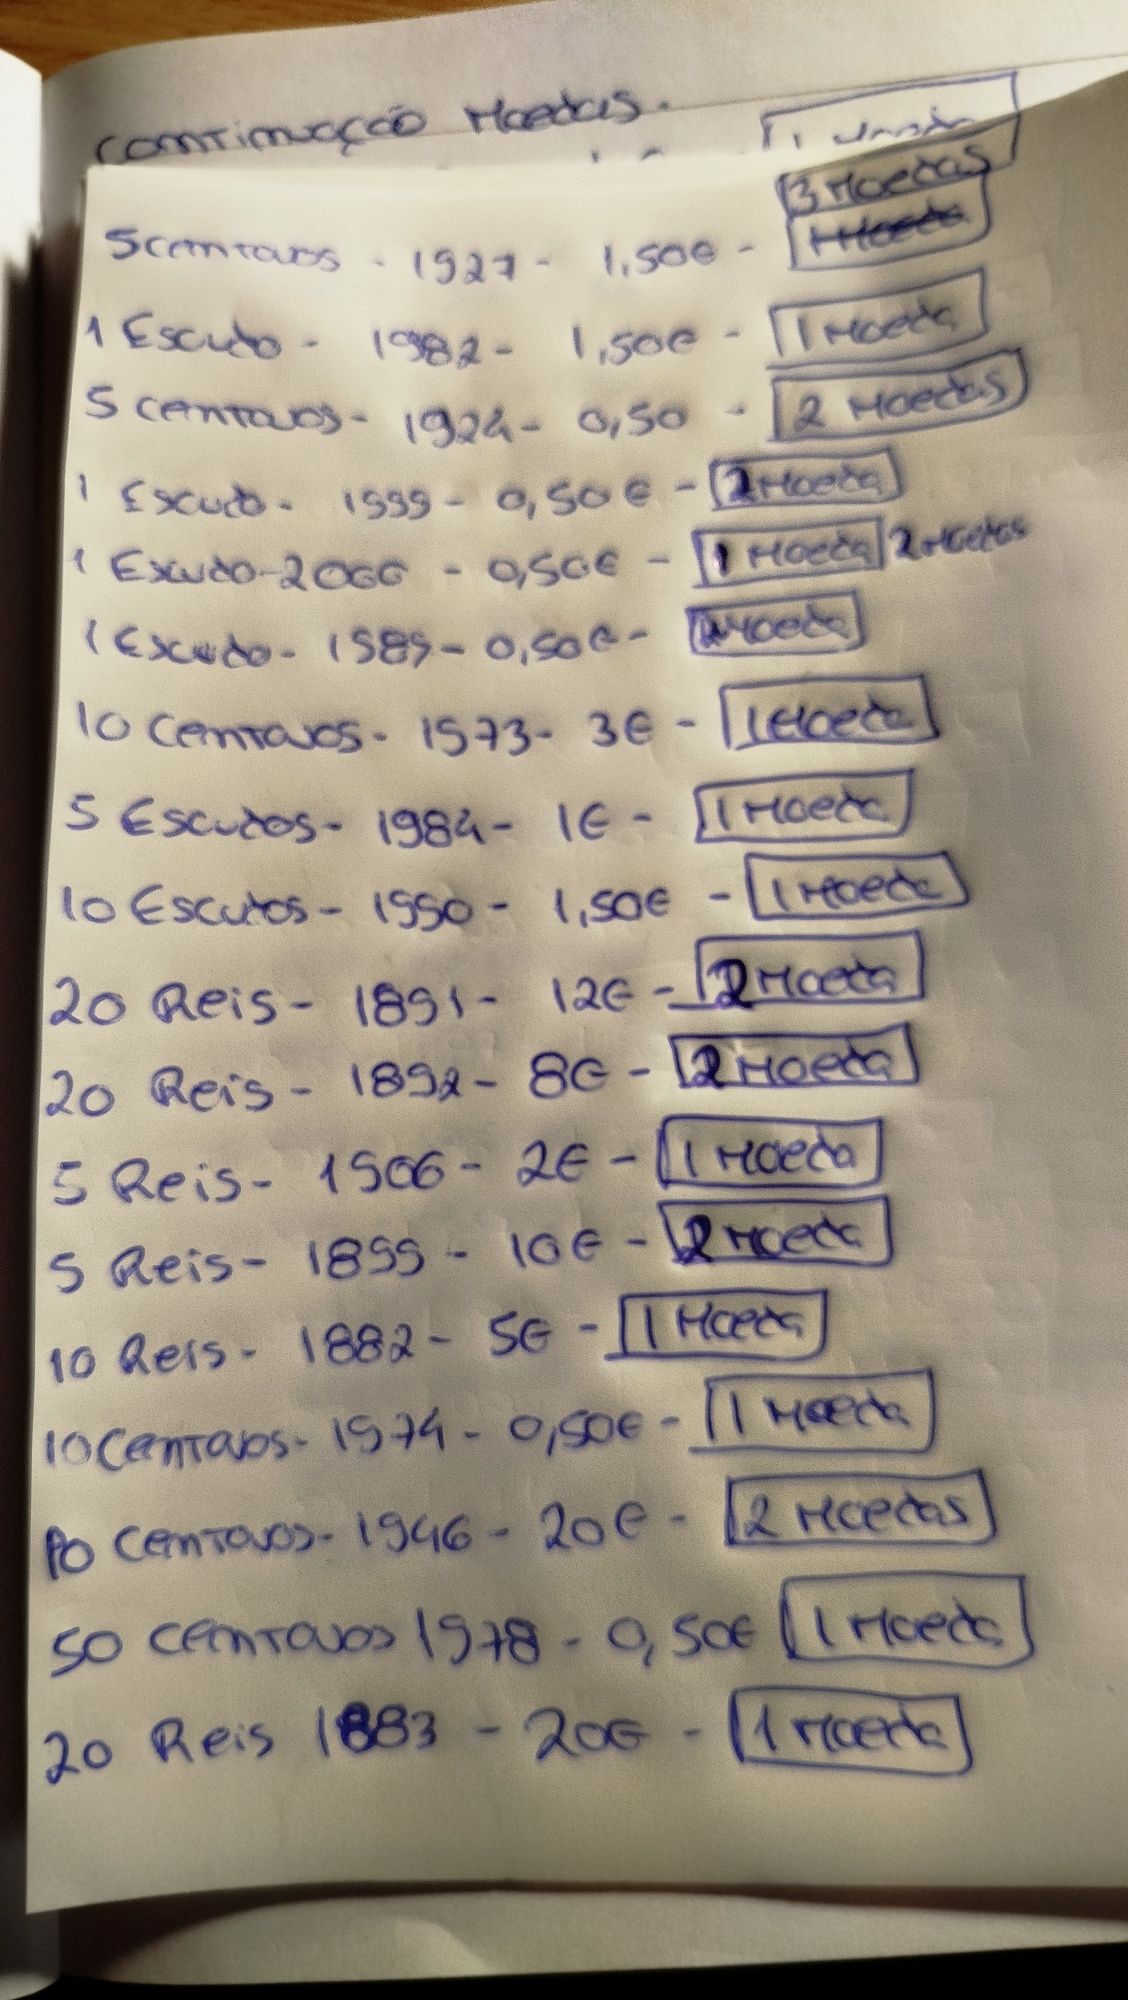 Continuação Moedas.
3 Moedas
5 centavos - 1927 - 1,50€ - 1 Moeda
1 Escudo - 1982 - 1,50€ - 1 Moeda
5 centavos - 1924 - 0,50 - 2 Moedas
1 Escudo - 1999 - 0,50€ - 2 Moeda
1 Escudo - 2000 - 0,50€ - 1 Moeda 2 Moedas
1 Escudo - 1989 - 0,50€ - 2 Moeda
10 Centavos - 1973 - 3€ - 1 Moeda
5 Escudos - 1984 - 1€ - 1 Moeda
10 Escudos - 1990 - 1,50€ - 1 Moeda
20 Reis - 1891 - 12€ - 2 Moeda
20 Reis - 1892 - 8€ - 2 Moeda
5 Reis - 1906 - 2€ - 1 Moeda
5 Reis - 1899 - 10€ - 2 Moeda
10 Reis - 1882 - 5€ - 1 Moeda
10 Centavos - 1974 - 0,50€ - 1 Moeda
10 Centavos - 1946 - 20€ - 2 Moedas
50 centavos 1978 - 0,50€ 1 Moeda
20 Reis 1883 - 20€ - 1 Moeda